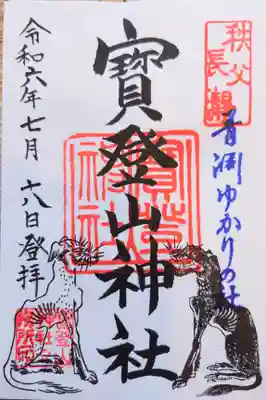 秩父
長瀞
青淵ゆかりの社
寳登山神社
令和六年七月
六日登拝